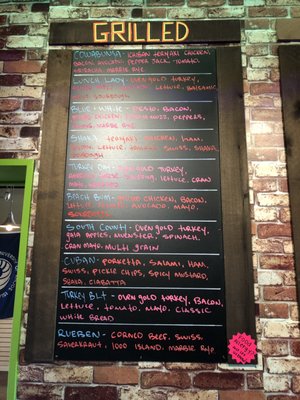 GRILLED
COWABUNGA - KAHUNA TERIYAKI CHICKEN,
BACON, AVOCADO, PEPPER JACK, TOMATO,
SRIRACHA MARBLE RYE
LUNCH LADY - OVEN GOLD TURKEY,
LETTUCE, BALSAMIC,
SOURDOUGH
BLUE + WHITE - PESTO, BACON,
CHICKEN, MOZZ, PEPPERS,
MARBLE RYE
SHAKA - TERIYAKI CHICKEN, HAM,
LETTUCE, SWISS, SHAKA,
SOURDOUGH
TURKEY DAY - OVEN GOLD TURKEY,
STUFFING, LETTUCE, CRAN
MAYO,
BEACH BUM - CHICKEN, BACON,
LETTUCE, AVOCADO, MAYO,
SOURDOUGH
SOUTH COUNTY - OVEN GOLD TURKEY,
GALA APPLES, MUENSTER, SPINACH,
CRAN MAYO, MULTI GRAIN
CUBAN - PORKETTA, SALAMI, HAM,
SWISS, PICKLE CHIPS, SPICY MUSTARD,
SHAKA, CIABATTA
TURKEY BLT - OVEN GOLD TURKEY, BACON,
LETTUCE, TOMATO, MAYO, CLASSIC
WHITE BREAD
RUEBEN - CORNED BEEF, SWISS,
SAUERKRAUT, 1000 ISLAND, MARBLE RYE